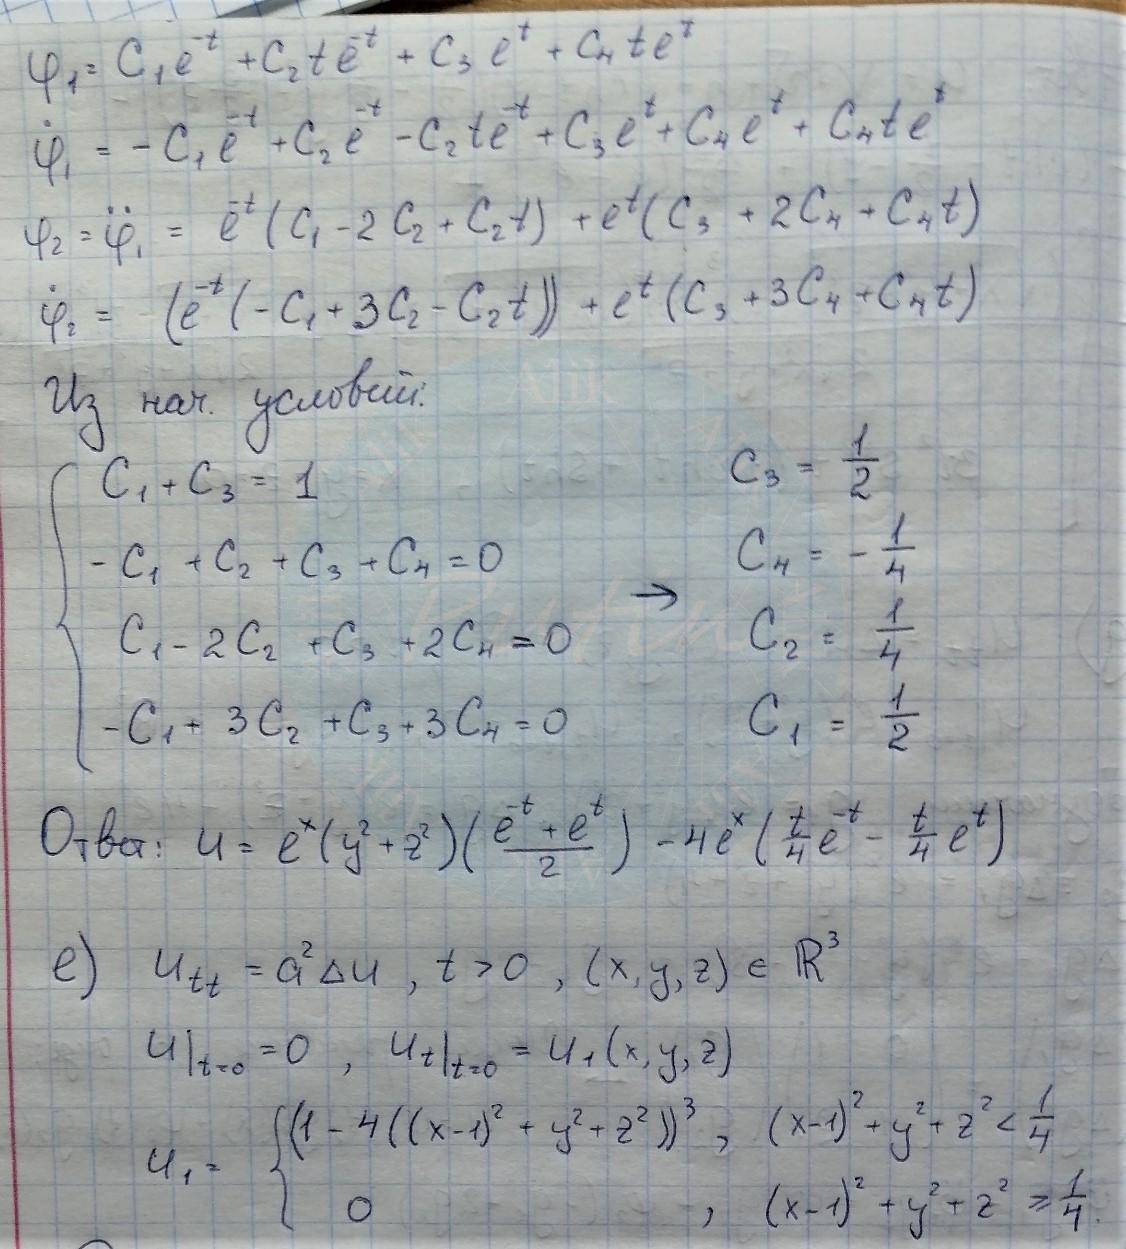 φ₁ = C₁e⁻ᵗ + C₂te⁻ᵗ + C₃eᵗ + C₄teᵗ
φ̇₁ = -C₁e⁻ᵗ + C₂e⁻ᵗ - C₂te⁻ᵗ + C₃eᵗ + C₄eᵗ + C₄teᵗ
φ₂ = φ̈₁ = e⁻ᵗ(C₁ - 2C₂ + C₂t) + eᵗ(C₃ + 2C₄ + C₄t)
φ̇₂ = (e⁻ᵗ(-C₁ + 3C₂ - C₂t)) + eᵗ(C₃ + 3C₄ + C₄t)
Из нач. условий:
C₁ + C₃ = 1
-C₁ + C₂ + C₃ + C₄ = 0
C₁ - 2C₂ + C₃ + 2C₄ = 0
-C₁ + 3C₂ + C₃ + 3C₄ = 0
→
C₃ = 1/2
C₄ = -1/4
C₂ = 1/4
C₁ = 1/2
Ответ: u = eˣ(y² + z²)((e⁻ᵗ + eᵗ)/2) - 4eˣ(t/4 e⁻ᵗ - t/4 eᵗ)
е) uₜₜ = a²Δu, t > 0, (x, y, z) ∈ ℝ³
u|ₜ₌₀ = 0, uₜ|ₜ₌₀ = u₁(x, y, z)
u₁ = { (1 - 4((x-1)² + y² + z²))³, (x-1)² + y² + z² < 1/4
0, (x-1)² + y² + z² ≥ 1/4.